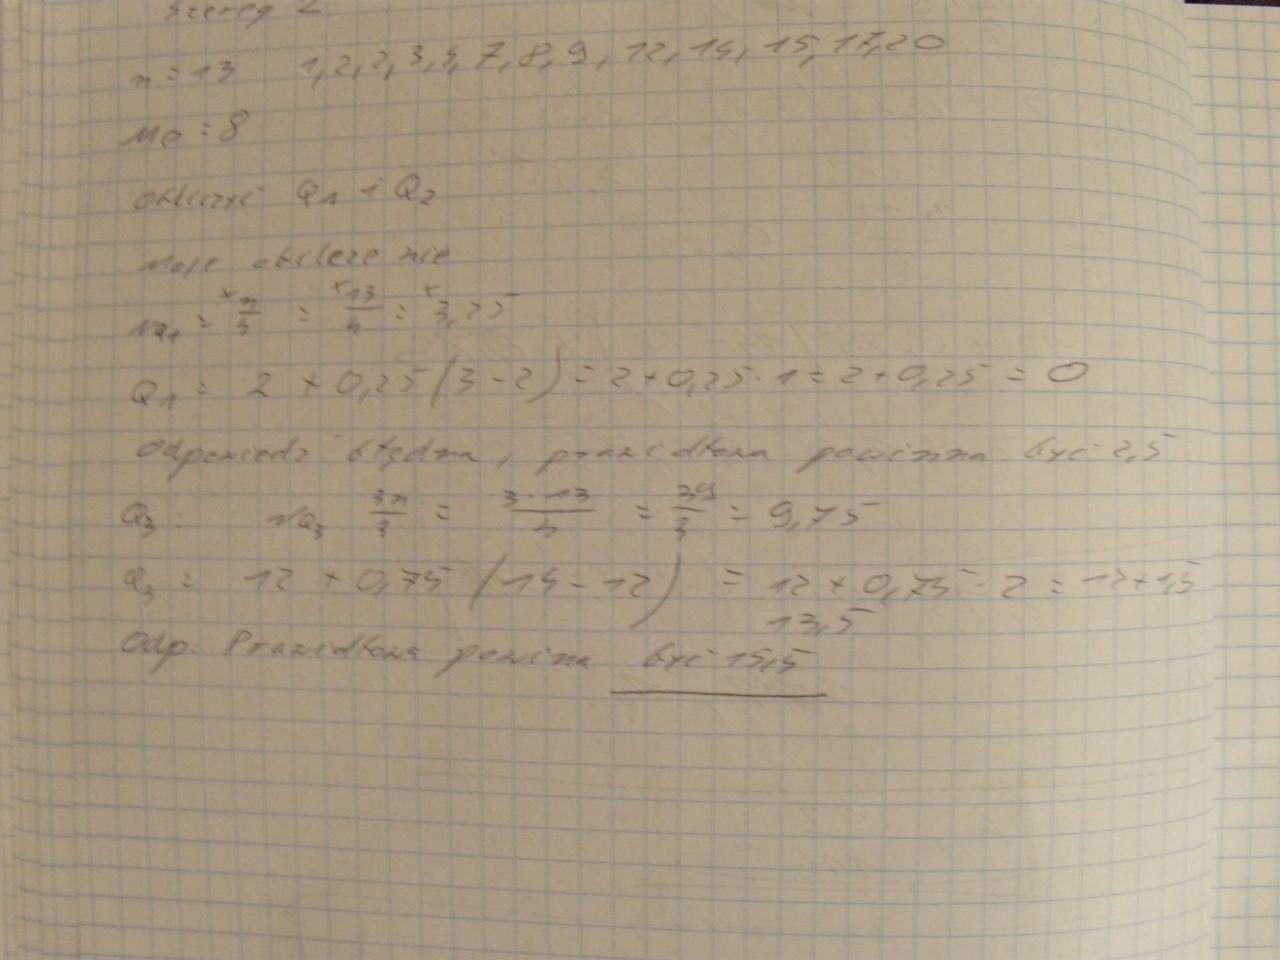 Szereg 2
n = 13 1, 2, 2, 3, 4, 7, 8, 9, 12, 14, 15, 17, 20
Me = 8
obliczyć Q1 i Q2
Moje obliczenie
NQ1 = n/4 = 13/4 = 3,25
Q1 = 2 + 0,25 (3 - 2) = 2 + 0,25 · 1 = 2 + 0,25 = 0
Odpowiedź błędna, prawidłowa powinna być 2,5
Q3 : NQ3 3n/3 = 3·13/4 = 39/3 = 9,75
Q3 = 12 + 0,75 (14 - 12) = 12 + 0,75 · 2 = 12 + 1,5
13,5
Odp. Prawidłowa powina być 15,5